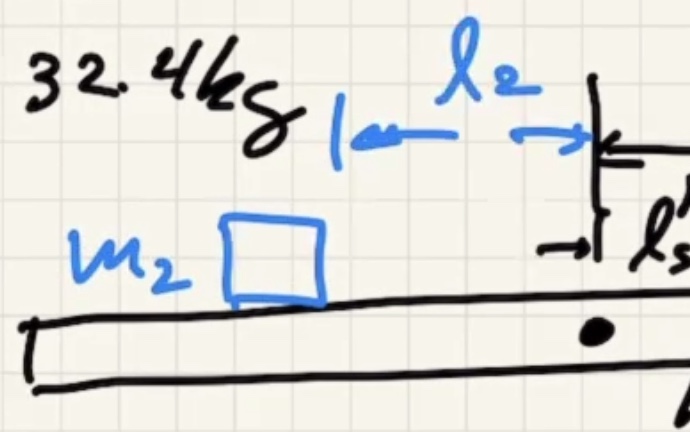 32.4kg
l₂
m₂